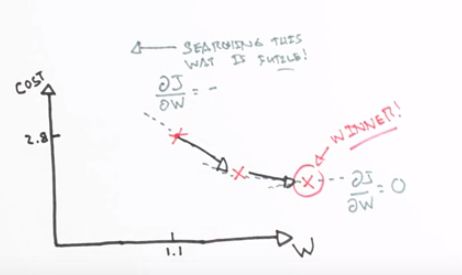 SEARCHING THIS
WAY IS FUTILE!
∂J/∂W = -
COST
2.8
WINNER!
∂J/∂W = 0
1.1
W